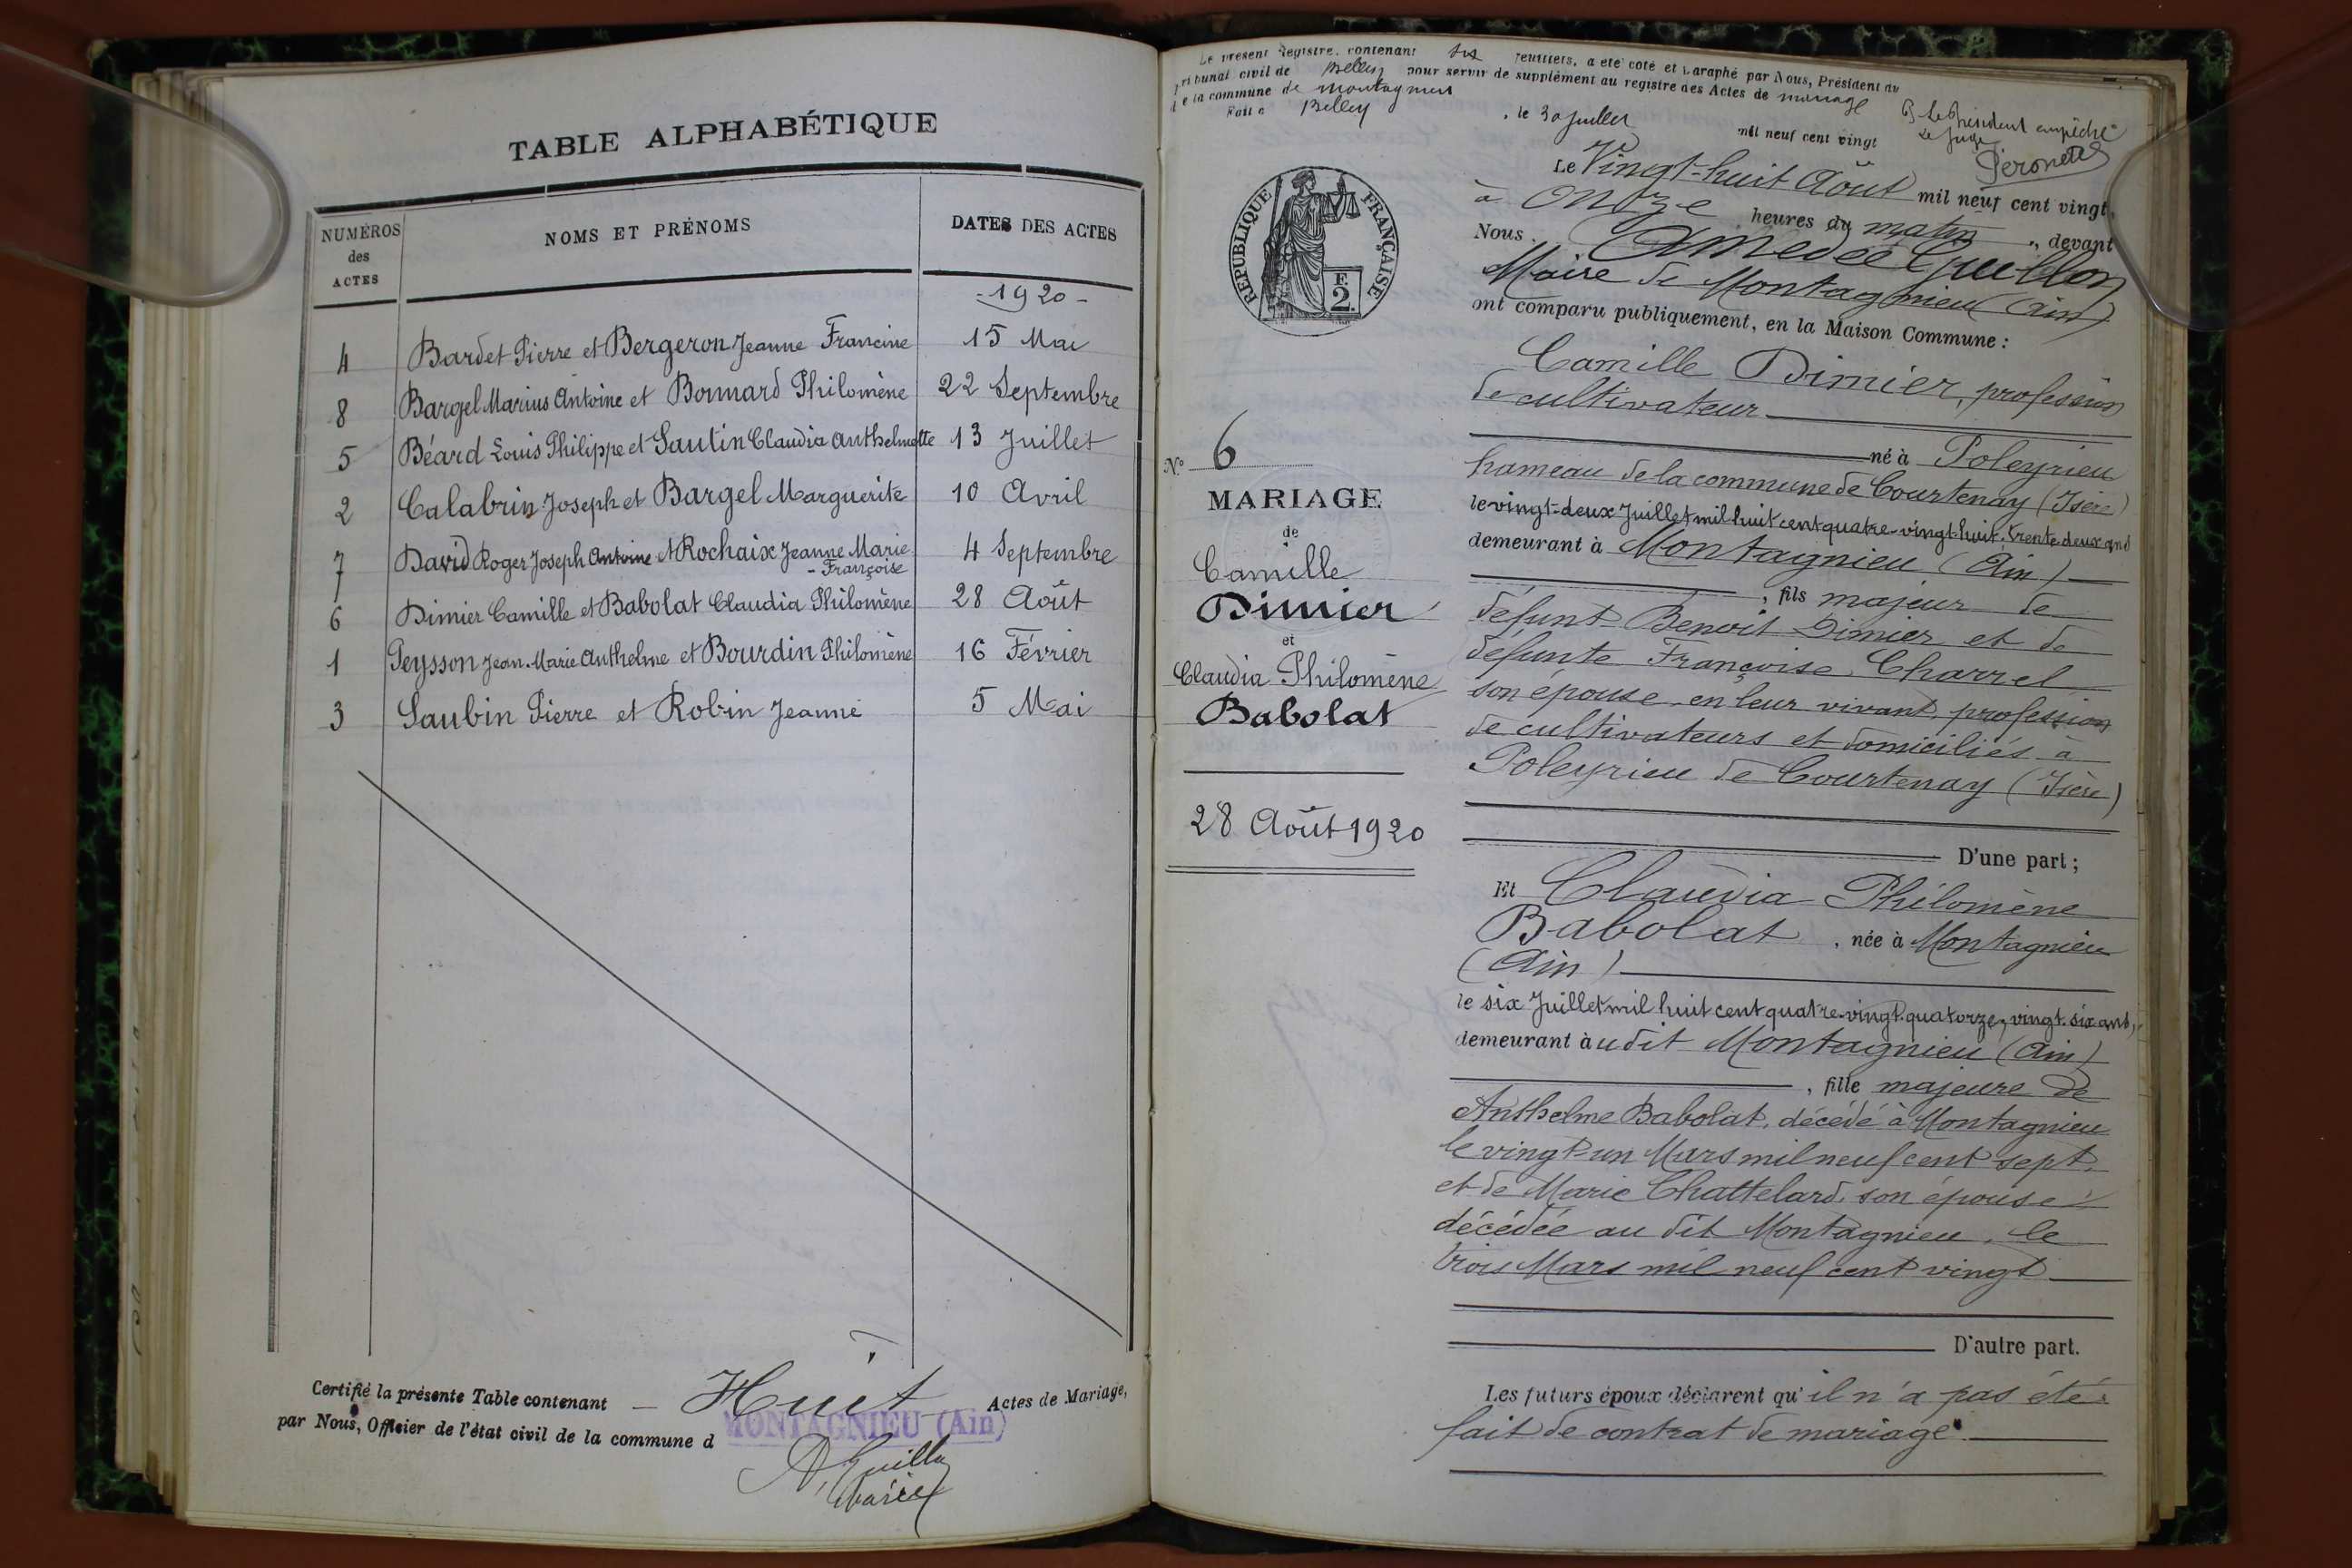 TABLE ALPHABÉTIQUE
NUMÉROS des ACTES
NOMS ET PRÉNOMS
DATES DES ACTES
-1920-
4 Bardet Pierre et Bergeron Jeanne Francine 15 Mai
8 Bargel Marius Antoine et Bonnard Philomène 22 Septembre
5 Béard Louis Philippe et Sautin Claudia Anthelmette 13 Juillet
2 Calabrin Joseph et Bargel Marguerite 10 Avril
7 David Roger Joseph Antoine et Rochaix Jeanne Marie 4 Septembre
- Françoise
6 Dimier Camille et Babolat Claudia Philomène 28 Août
1 Peysson Jean-Marie Anthelme et Bourdin Philomène 16 Février
3 Saubin Pierre et Robin Jeanne 5 Mai
Certifié la présente Table contenant — Huit Actes de Mariage,
par Nous, Officier de l'état civil de la commune d
MONTAGNIEU (Ain)
A. Guillon
Le présent Registre, contenant six feuillets, a été coté et paraphé par Nous, Président du
Tribunal civil de Belley pour servir de supplément au registre des Actes de mariage
de la commune de Montagnieu
Fait à Belley, le 30 juillet mil neuf cent vingt
P. Le Président empêché
Le Juge
RÉPUBLIQUE FRANÇAISE
F.
2.
Nº 6
MARIAGE
de
Camille
Dimier
et
Claudia Philomène
Babolat
28 Août 1920
Le Vingt-huit Août mil neuf cent vingt,
à Onze heures du matin, devant
Nous, Amédée Guillon
Maire de Montagnieu (Ain)
ont comparu publiquement, en la Maison Commune :
Camille Dimier, profession
de cultivateur
né à Poleyrieu
hameau de la commune de Courtenay (Isère)
le vingt-deux Juillet mil huit cent quatre-vingt-huit, trente deux ans
demeurant à Montagnieu (Ain)
, fils majeur de
défunt Benoit Dimier et de
défunte Françoise Charrel
son épouse, en leur vivant, profession
de cultivateurs et domiciliés à
Poleyrieu de Courtenay (Isère)
D'une part ;
Et Claudia Philomène
Babolat, née à Montagnieu
(Ain)
le six Juillet mil huit cent quatre-vingt-quatorze, vingt-six ans,
demeurant audit Montagnieu (Ain)
, fille majeure de
Anthelme Babolat, décédé à Montagnieu
le vingt-un Mars mil neuf cent sept,
et de Marie Chattelard, son épouse
décédée au dit Montagnieu, le
trois Mars mil neuf cent vingt
D'autre part.
Les futurs époux déclarent qu'il n'a pas été
fait de contrat de mariage.